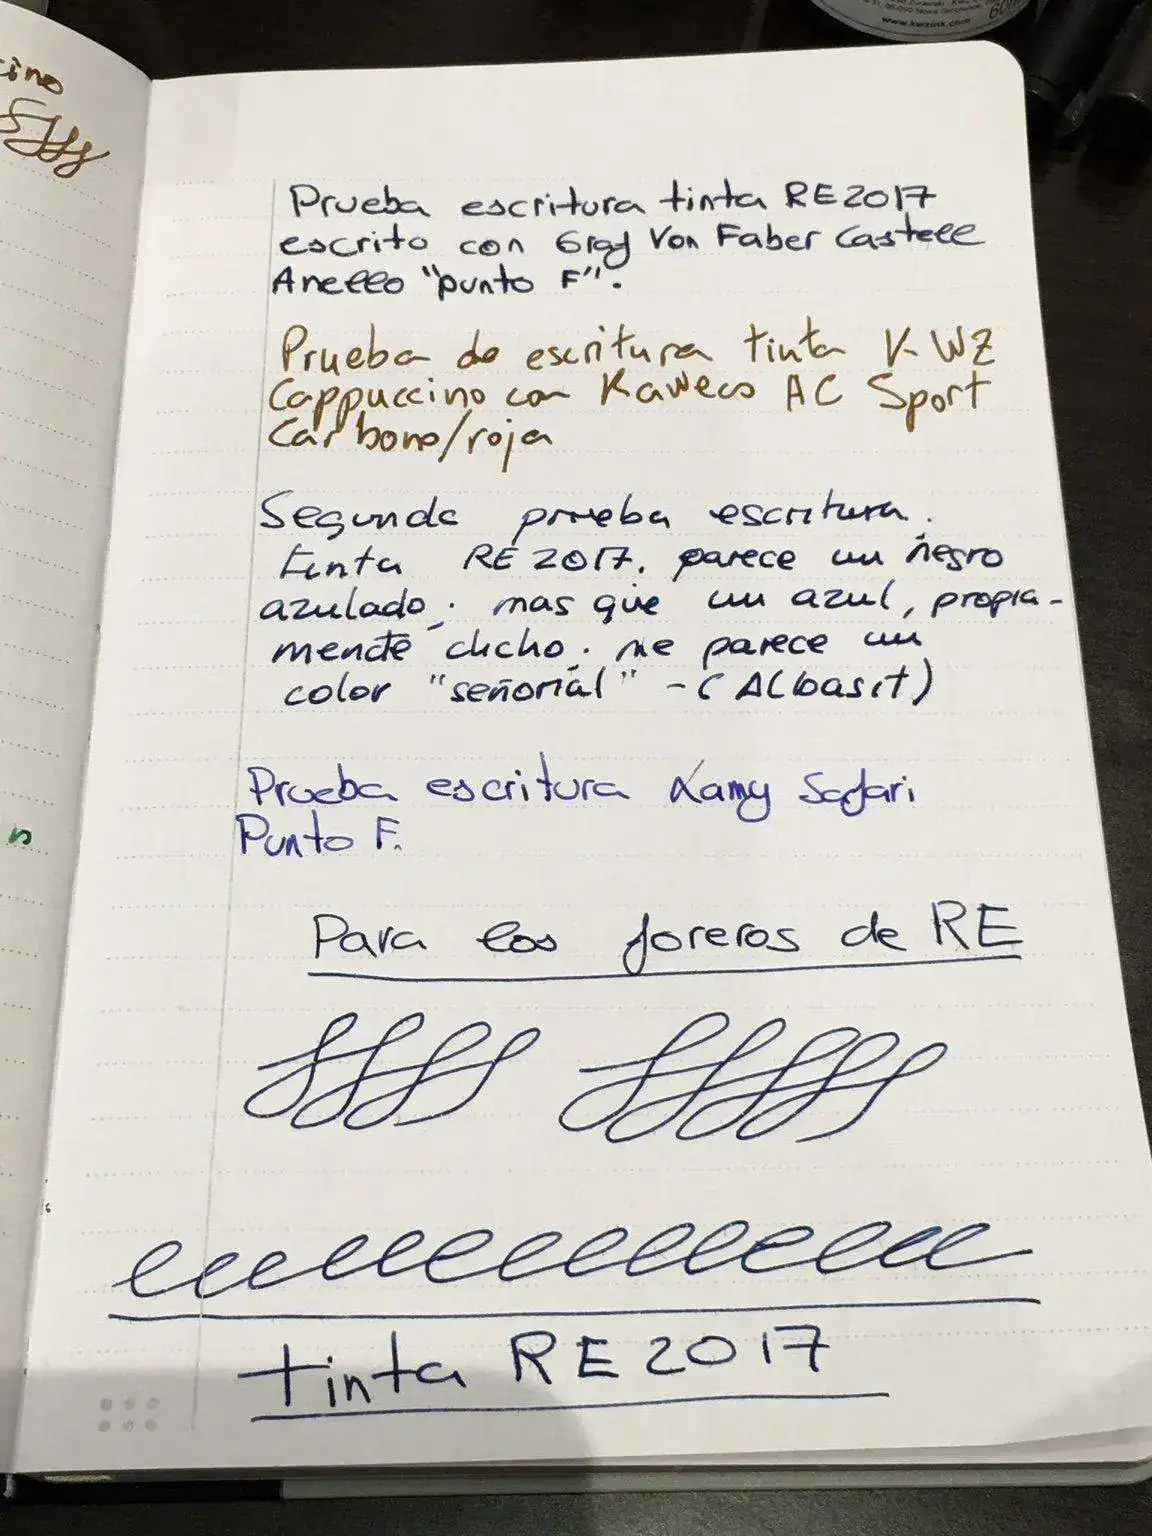 www.kwzink.com
60m
cino
Prueba escritura tinta RE2017
escrito con Graf Von Faber Castell
Anello "punto F".
Prueba de escritura tinta KWZ
Cappuccino con Kaweco AC Sport
Carbono/roja
Segunda prueba escritura.
tinta RE 2017. parece un negro
azulado. mas que un azul, propia-
mente dicho. me parece un
color "señorial" -( Albasit)
Prueba escritura Lamy Safari
Punto F.
s
Para los foreros de RE
tinta RE 2017